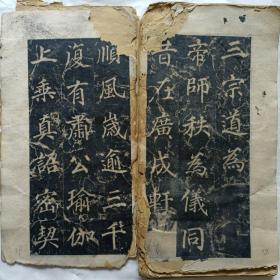 三宗道為
帝師秩為儀同
昔在廣成軒
順風歲逾三千
復有肅公瑜伽
上乘真詔密契